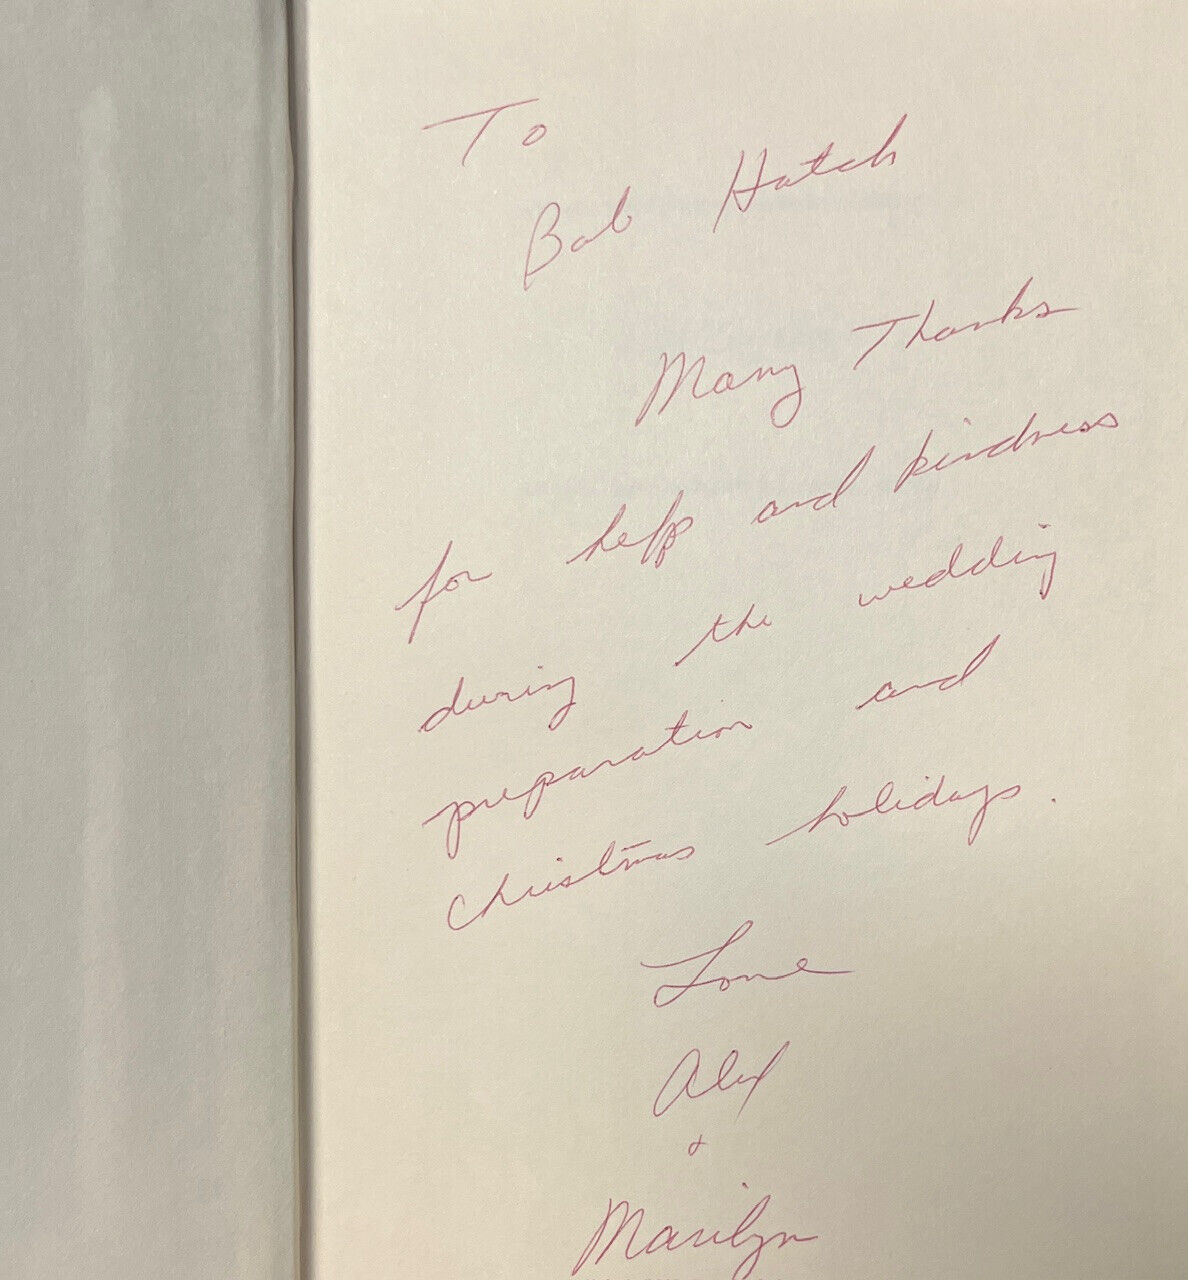 To
Bob Hatch
Many Thanks
for help and kindness
during the wedding
preparation and
christmas holidays.
Love
Alex
&
Marilyn